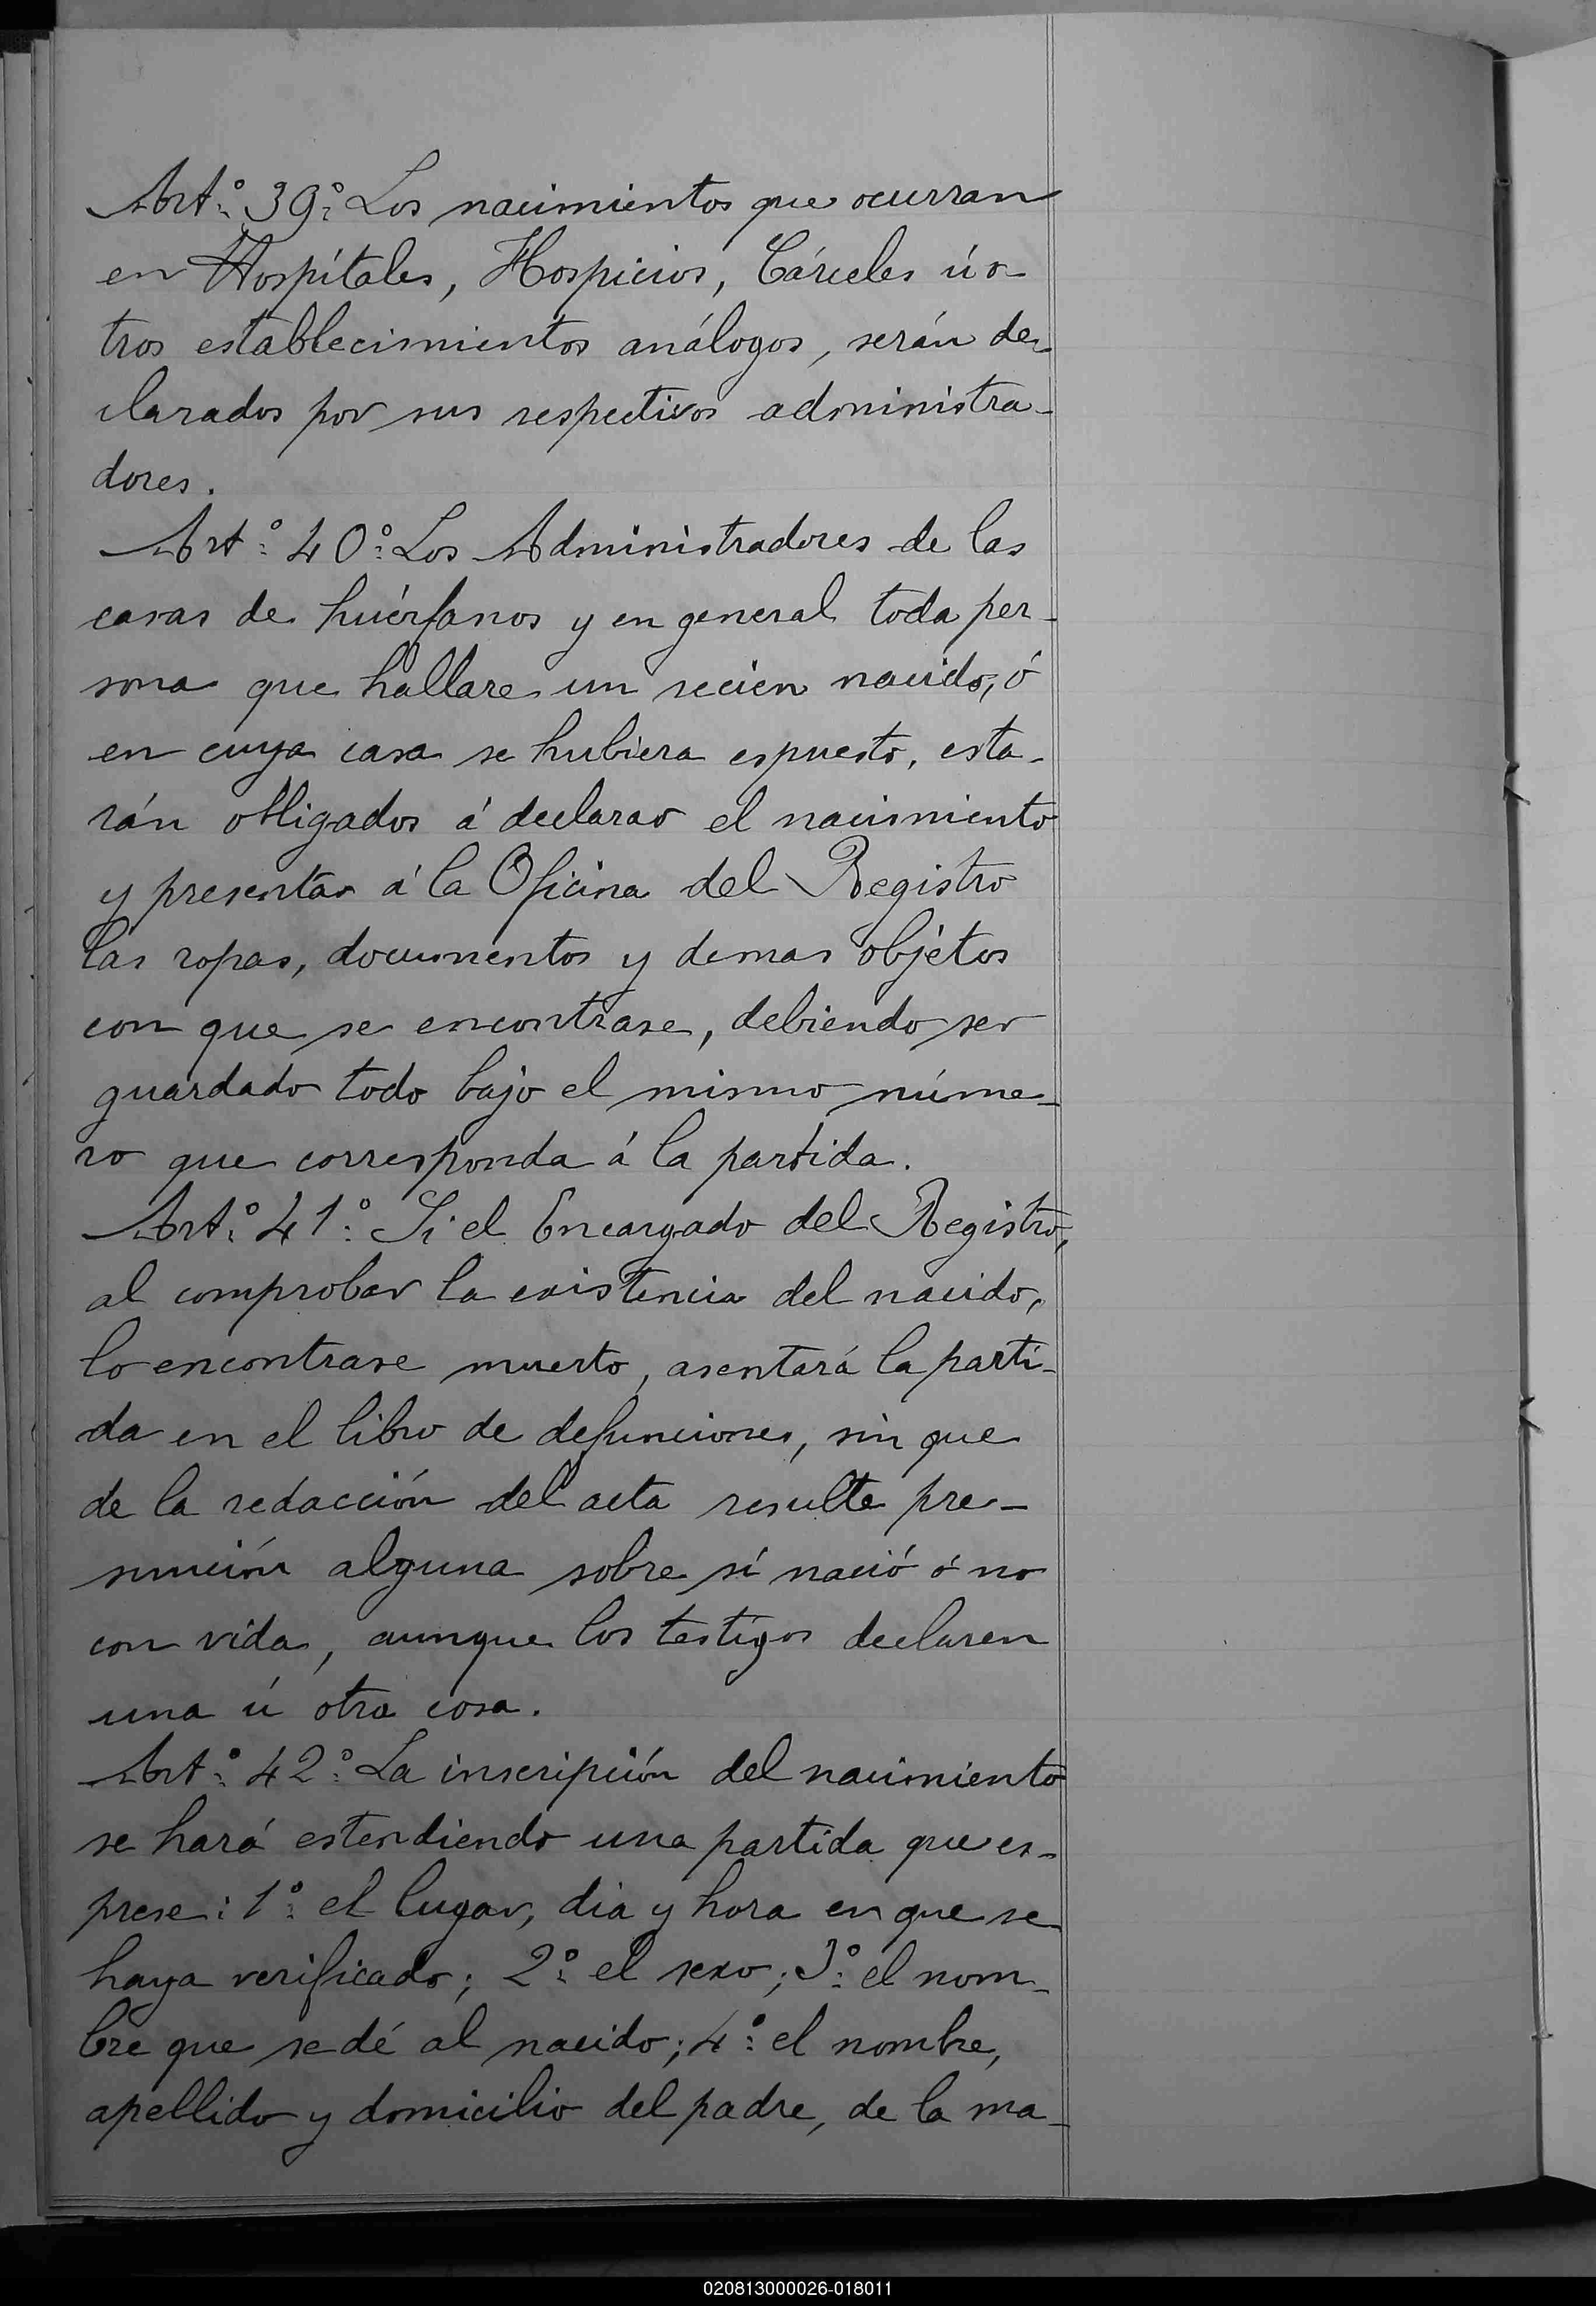 Art.º 39º. Los nacimientos que ocurran
en Hospítales, Hospicios, Cárceles ú o-
tros establecimientos análogos, serán de-
clarados por sus respectivos administra-
dores.
Art.º 40º. Los Administradores de las
casas de huérfanos y en general toda per-
sona que hallare un recien nacido, ó
en cuya casa se hubiera espuesto, esta-
rán obligados á declarar el nacimiento
y presentar á la Oficina del Registro
las ropas, documentos y demas objetos
con que se encontrase, debiendo ser
guardado todo bajo el mismo núme-
ro que corresponda á la partida.
Art.º 41º. Si el Encargado del Registro,
al comprobar la existencia del nacido,
lo encontrase muerto, asentará la parti-
da en el libro de defunciones, sin que
de la redacción del acta resulte pre-
sunción alguna sobre sí nació ó no
con vida, aunque los testigos declaren
una ú otra cosa.
Art.º 42º. La inscripción del nacimiento
se hará estendiendo una partida que es-
prese: 1º. el lugar, dia y hora en que se
haya verificado; 2º. el sexo; 3º. el nom-
bre que se dé al nacido; 4º. el nombre,
apellido y domicilio del padre, de la ma-
020813000026-018011